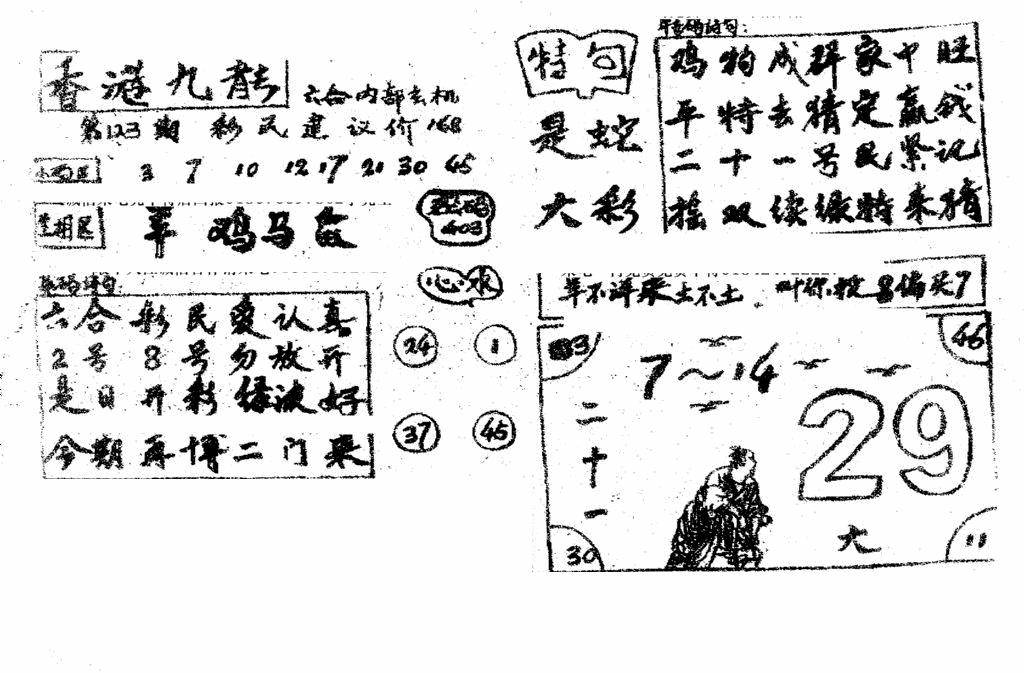 香港九龍
六合内部玄机
第123期 彩民建议价168
3 7 10 12 17 21 30 45
羊 鸡马鼠
403
心水
六合彩民爱认真
2号8号勿放开
是日开彩绿波好
今期再博二门来
24 1
37 45
特句
是蛇
大彩
鸡狗成群家中旺
平特去猜定赢钱
二十一号民紧记
摇双续续特来猜
羊不洋来土不土
46
7~14
29
二十一
30
大
11